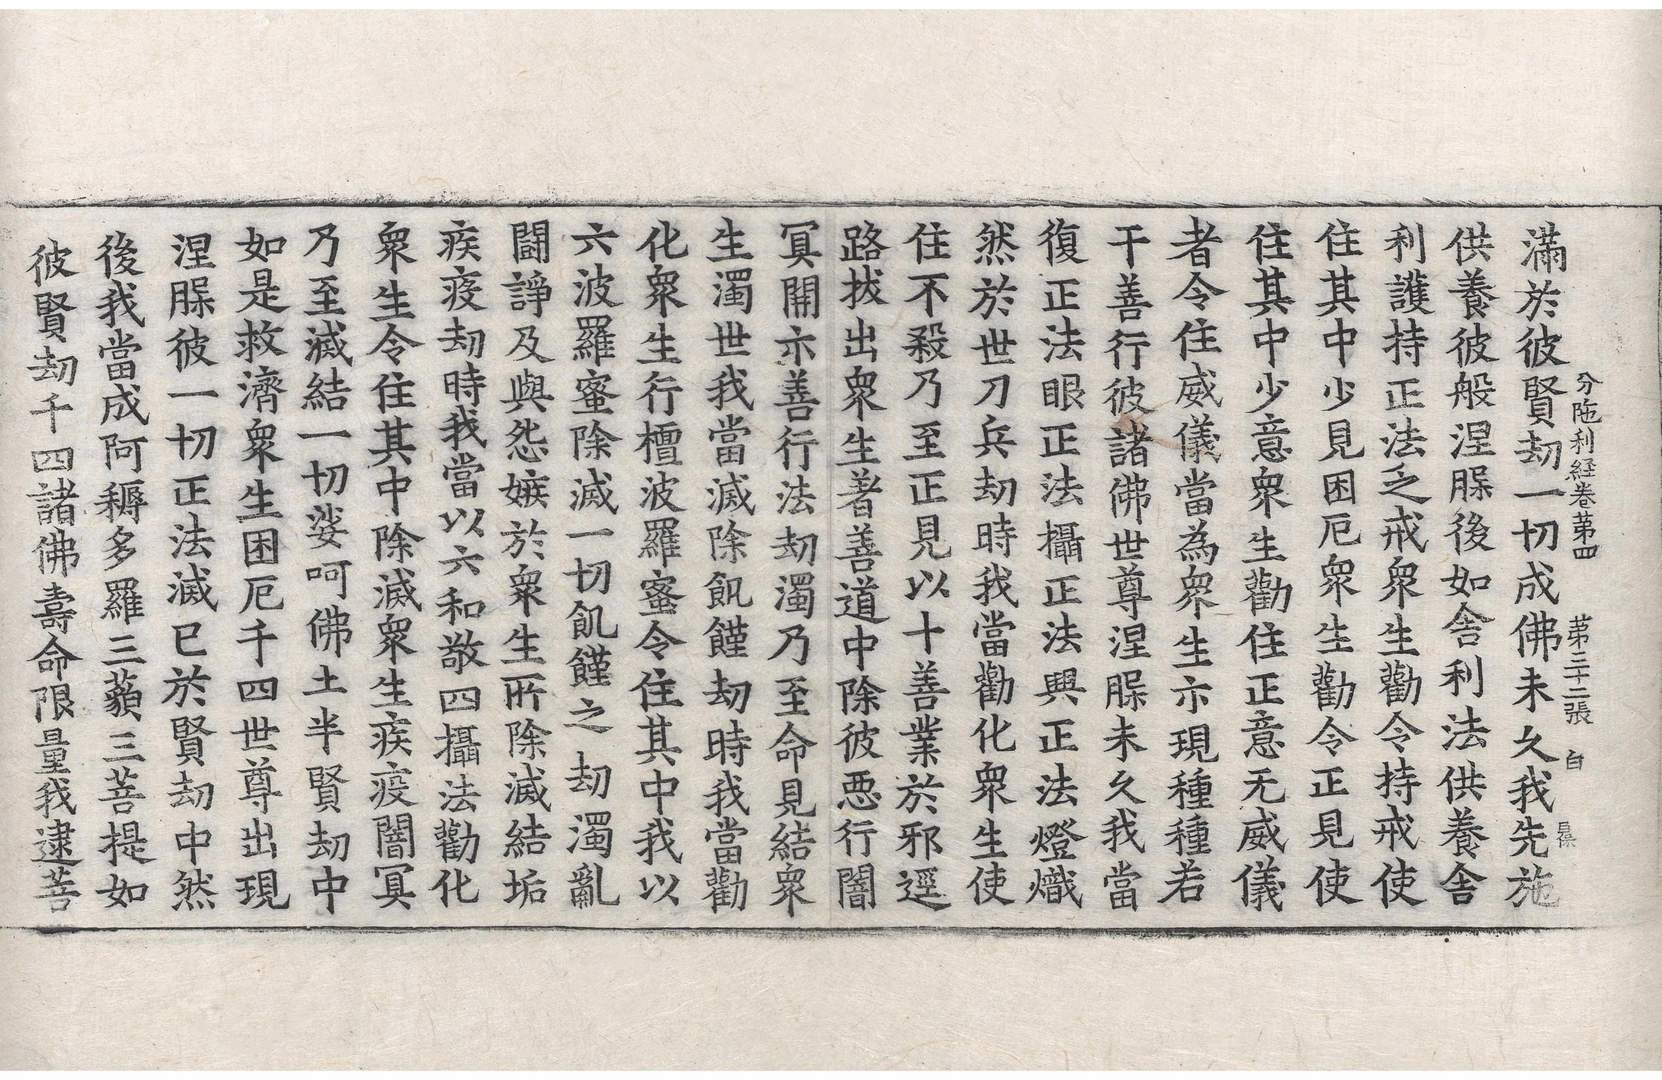 分陁利経卷苐四 苐三十二張 白
滿於彼賢劫一切成佛未久我先施
供養彼般涅脲後如舍利法供養舍
利護持正法乏戒衆生勸令持戒使
住其中少見困厄衆生勸令正見使
住其中少意衆生勸住正意无威儀
者令住威儀當為衆生亦現種種若
干善行彼諸佛世尊涅脲未久我當
復正法眼正法攝正法興正法燈熾
然於世刀兵劫時我當勸化衆生使
住不殺乃至正見以十善業於邪逕
路拔出衆生著善道中除彼惡行闇
冥開亦善行法劫濁乃至命見結衆
生濁世我當滅除飢饉劫時我當勸
化衆生行檀波羅蜜令住其中我以
六波羅蜜除滅一切飢饉之劫濁亂
鬪諍及與怨嫉於衆生所除滅結垢
疾疫劫時我當以六和敬四攝法勸化
衆生令住其中除滅衆生疾疫闇冥
乃至滅結一切娑呵佛土半賢劫中
如是救濟衆生困厄千四世尊出現
涅脲彼一切正法滅已於賢劫中然
後我當成阿耨多羅三藐三菩提如
彼賢劫千四諸佛壽命限量我逮菩